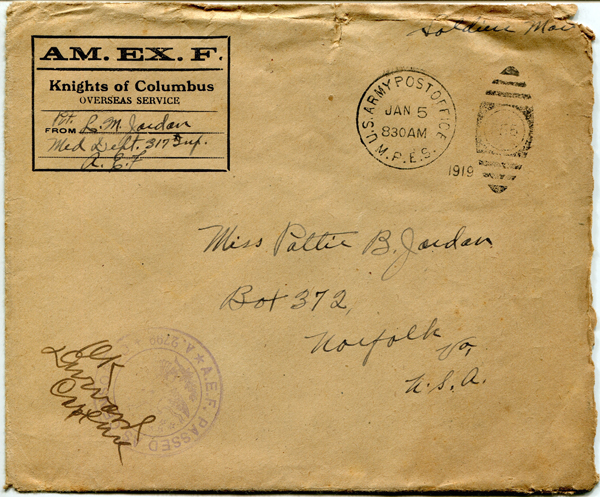 Soldiers Mail
AM. EX. F.
Knights of Columbus
OVERSEAS SERVICE
Pvt.
FROM R. M. Jordan
Med Dept. 317th Inf.
A. E. F
U.S. ARMY POST OFFICE
JAN 5
830AM
M.P.E.S.
1919
Miss Pattie B. Jordan
Box 372,
Norfolk
Va,
U.S.A.
OK
A.E.F. PASSED